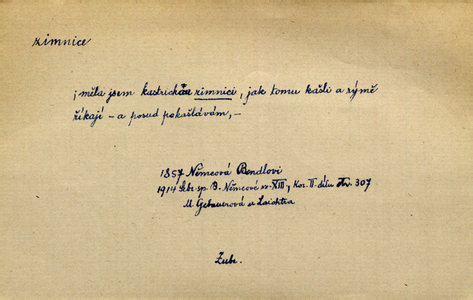 zimnice
; měla jsem kadrichár zimnici, jak tomu kašli a rýmě
říkají – a posud pokašlávám, –
1857 Němcová Bendlovi
1914 Sebr. sp. B. Němcové sv. XIII, Kor. II. dílu str. 307
M. Gebauerová u Laichtra
Zubr.